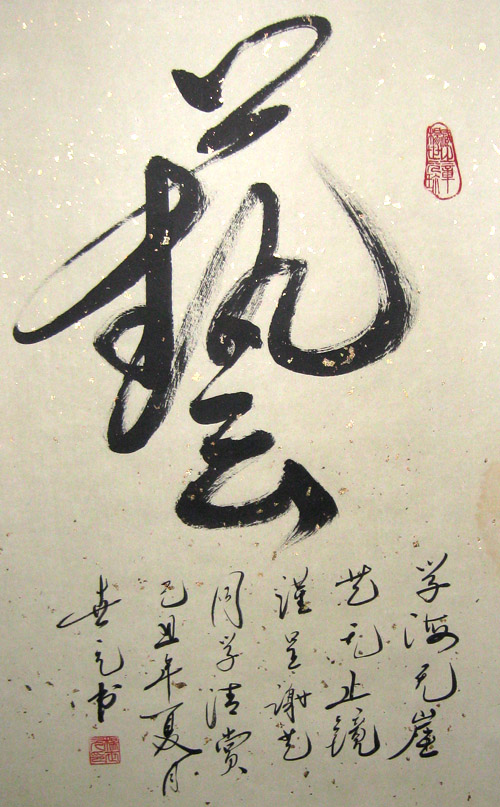 藝
学海无崖
艺无止镜
谨呈谢
同学清赏
己丑年夏月
世元书